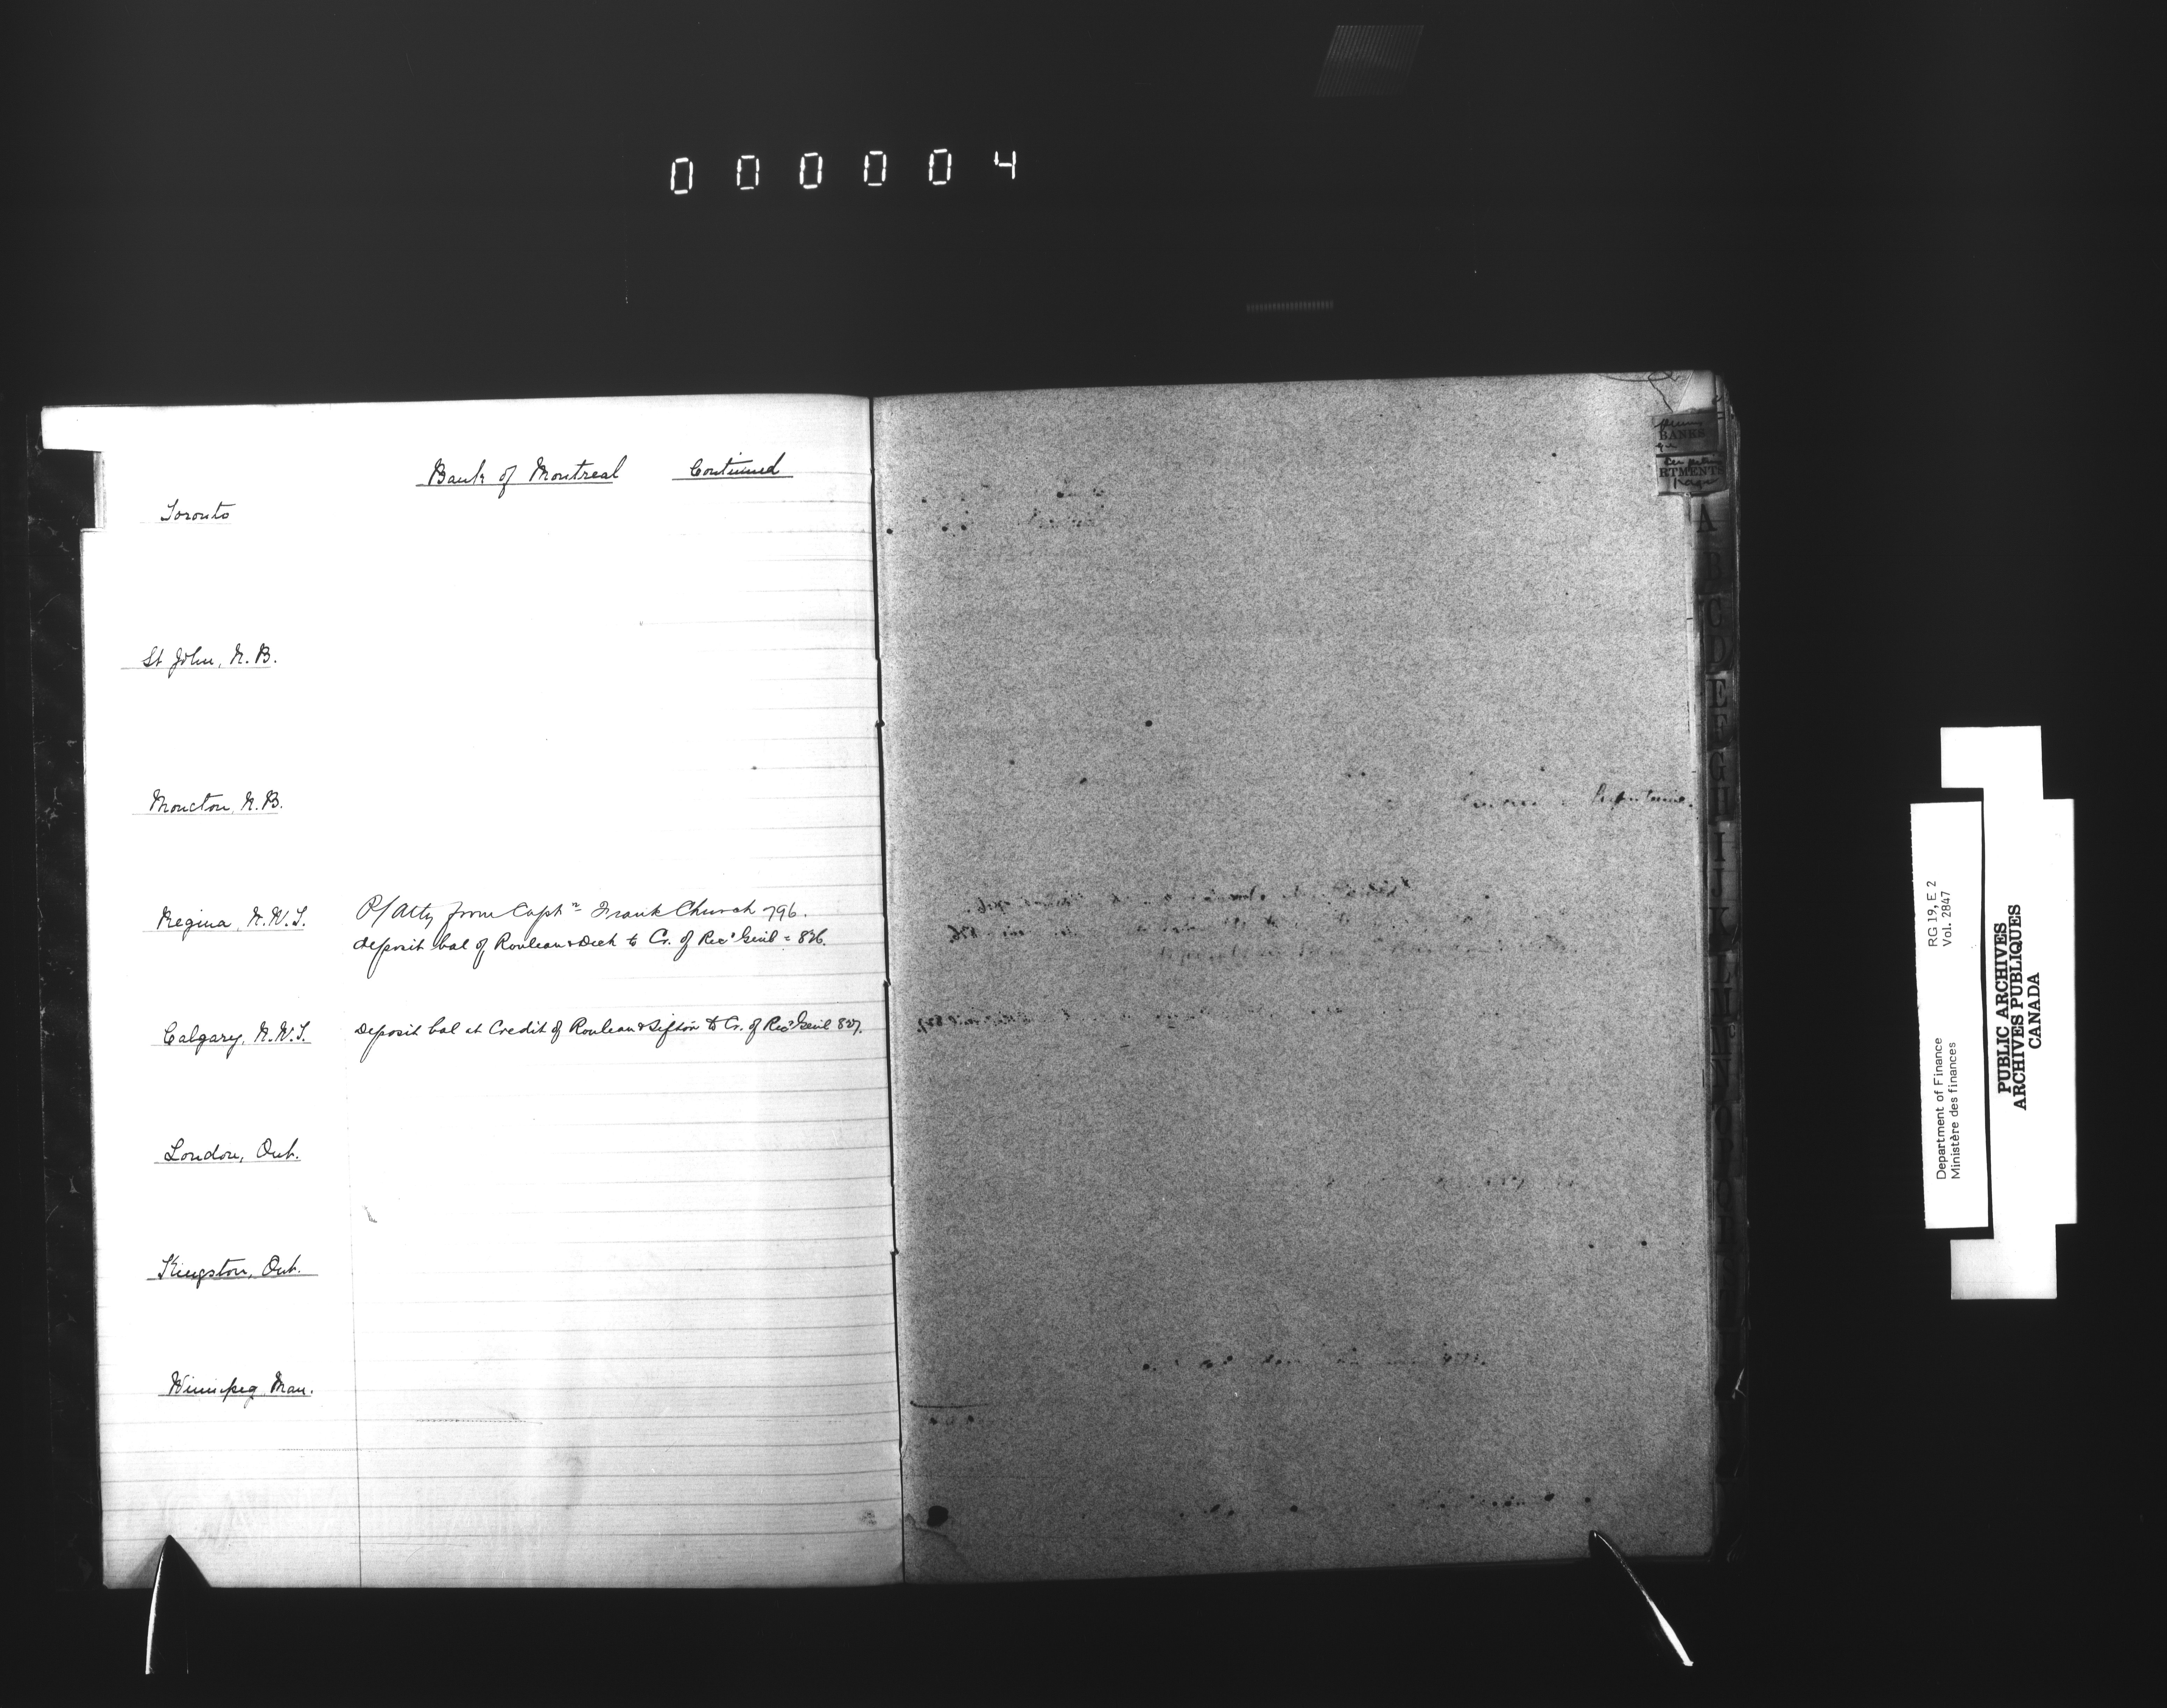 000004
Bank of Montreal Continued
Toronto
St John, N.B.
Moncton, N.B.
Regina, N.W.T. P/Atty from Captn Frank Church 796.
deposit bal of Rouleau & Dick to Cr. of Recr Genl = 826.
Calgary, N.W.T. deposit bal at Credit of Rouleau & Sifton to Cr. of Recr Genl 827.
London, Ont.
Kingston, Ont.
Winnipeg, Man.
BANKS
RTMENTS
A
B
C
D
E
F
G
H
I
J
K
L
M
N
O
P
Q
R
RG 19, E 2
Vol. 2847
Department of Finance
Ministère des finances
PUBLIC ARCHIVES
ARCHIVES PUBLIQUES
CANADA